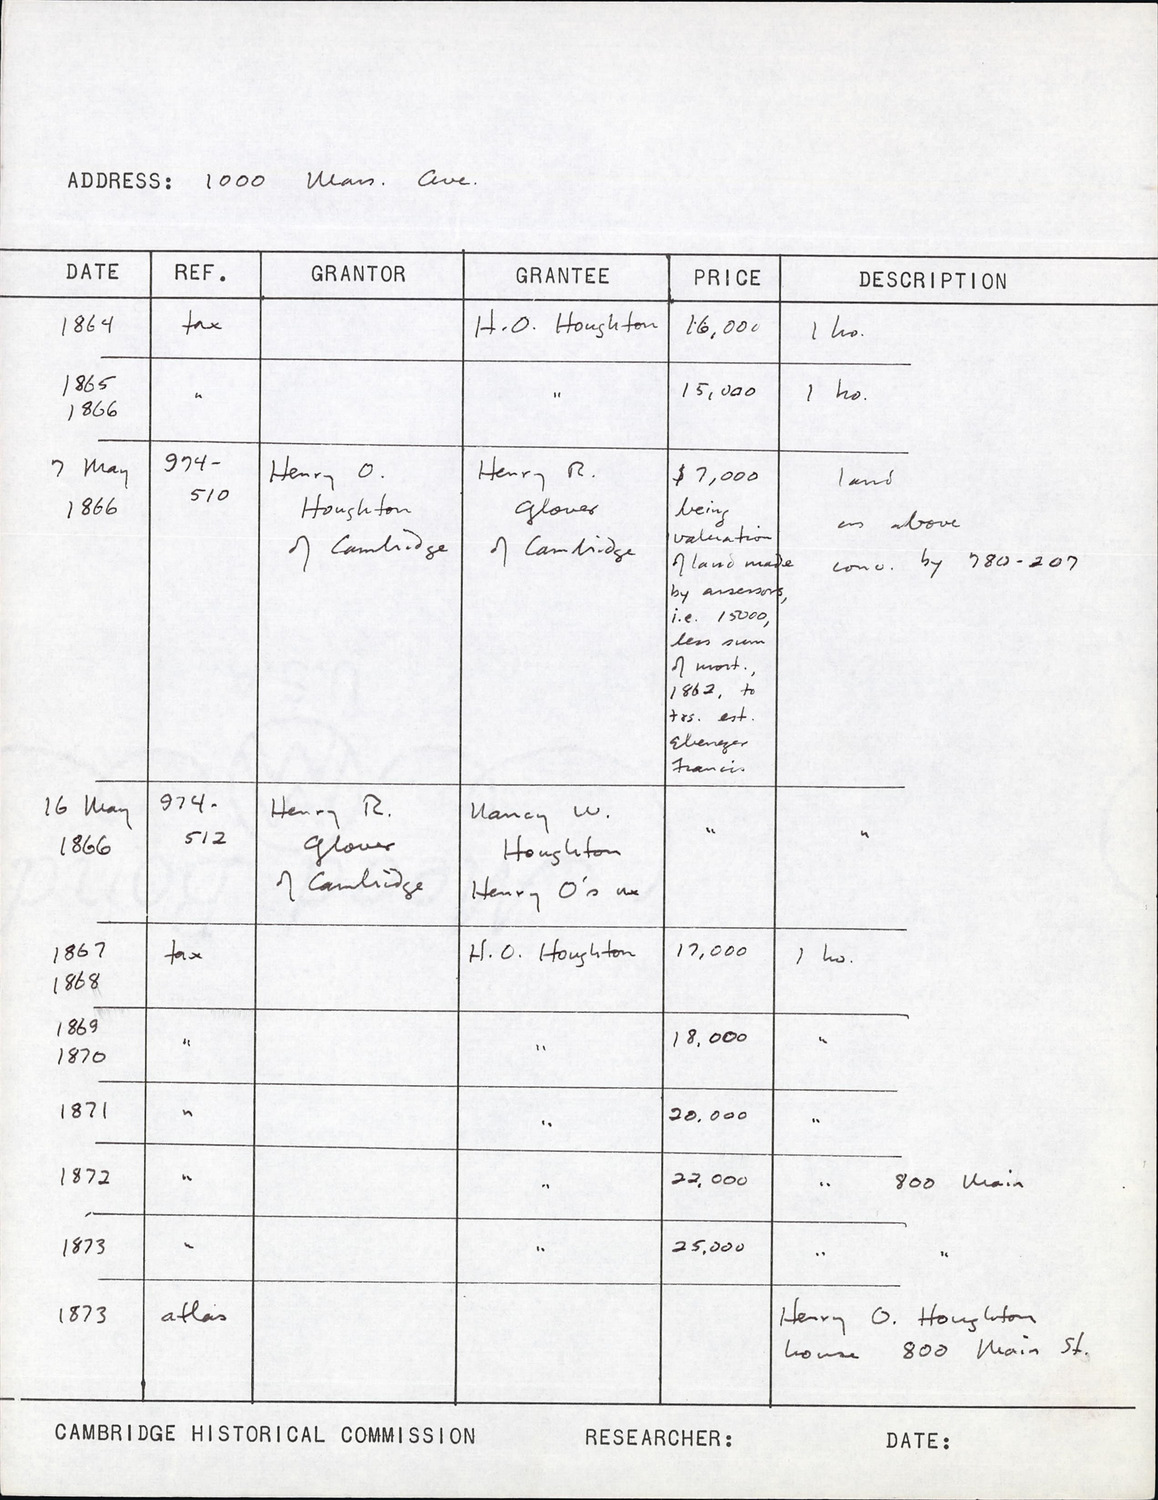 ADDRESS: 1000 Mass. Ave.
DATE REF. GRANTOR GRANTEE PRICE DESCRIPTION
1864 tax H.O. Houghton 16,000 1 ho.
1865
1866 " " 15,000 1 ho.
7 May 974- Henry O. Henry R. $7,000 land
1866 510 Houghton Glover being as above
of Cambridge of Cambridge valuation conv. by 780-207
of land made
by assessors,
i.e. 15000,
less sum
of mort.,
1862, to
trs. est.
Ebenezer
Francis
16 May 974- Henry R. Nancy W. " "
1866 512 Glover Houghton
of Cambridge Henry O's ux
1867 tax H.O. Houghton 17,000 1 ho.
1868
1869
1870 " " 18,000 "
1871 " " 20,000 "
1872 " " 22,000 " 800 Main
1873 " " 25,000 " "
1873 atlas Henry O. Houghton
house 800 Main St.
CAMBRIDGE HISTORICAL COMMISSION RESEARCHER: DATE: